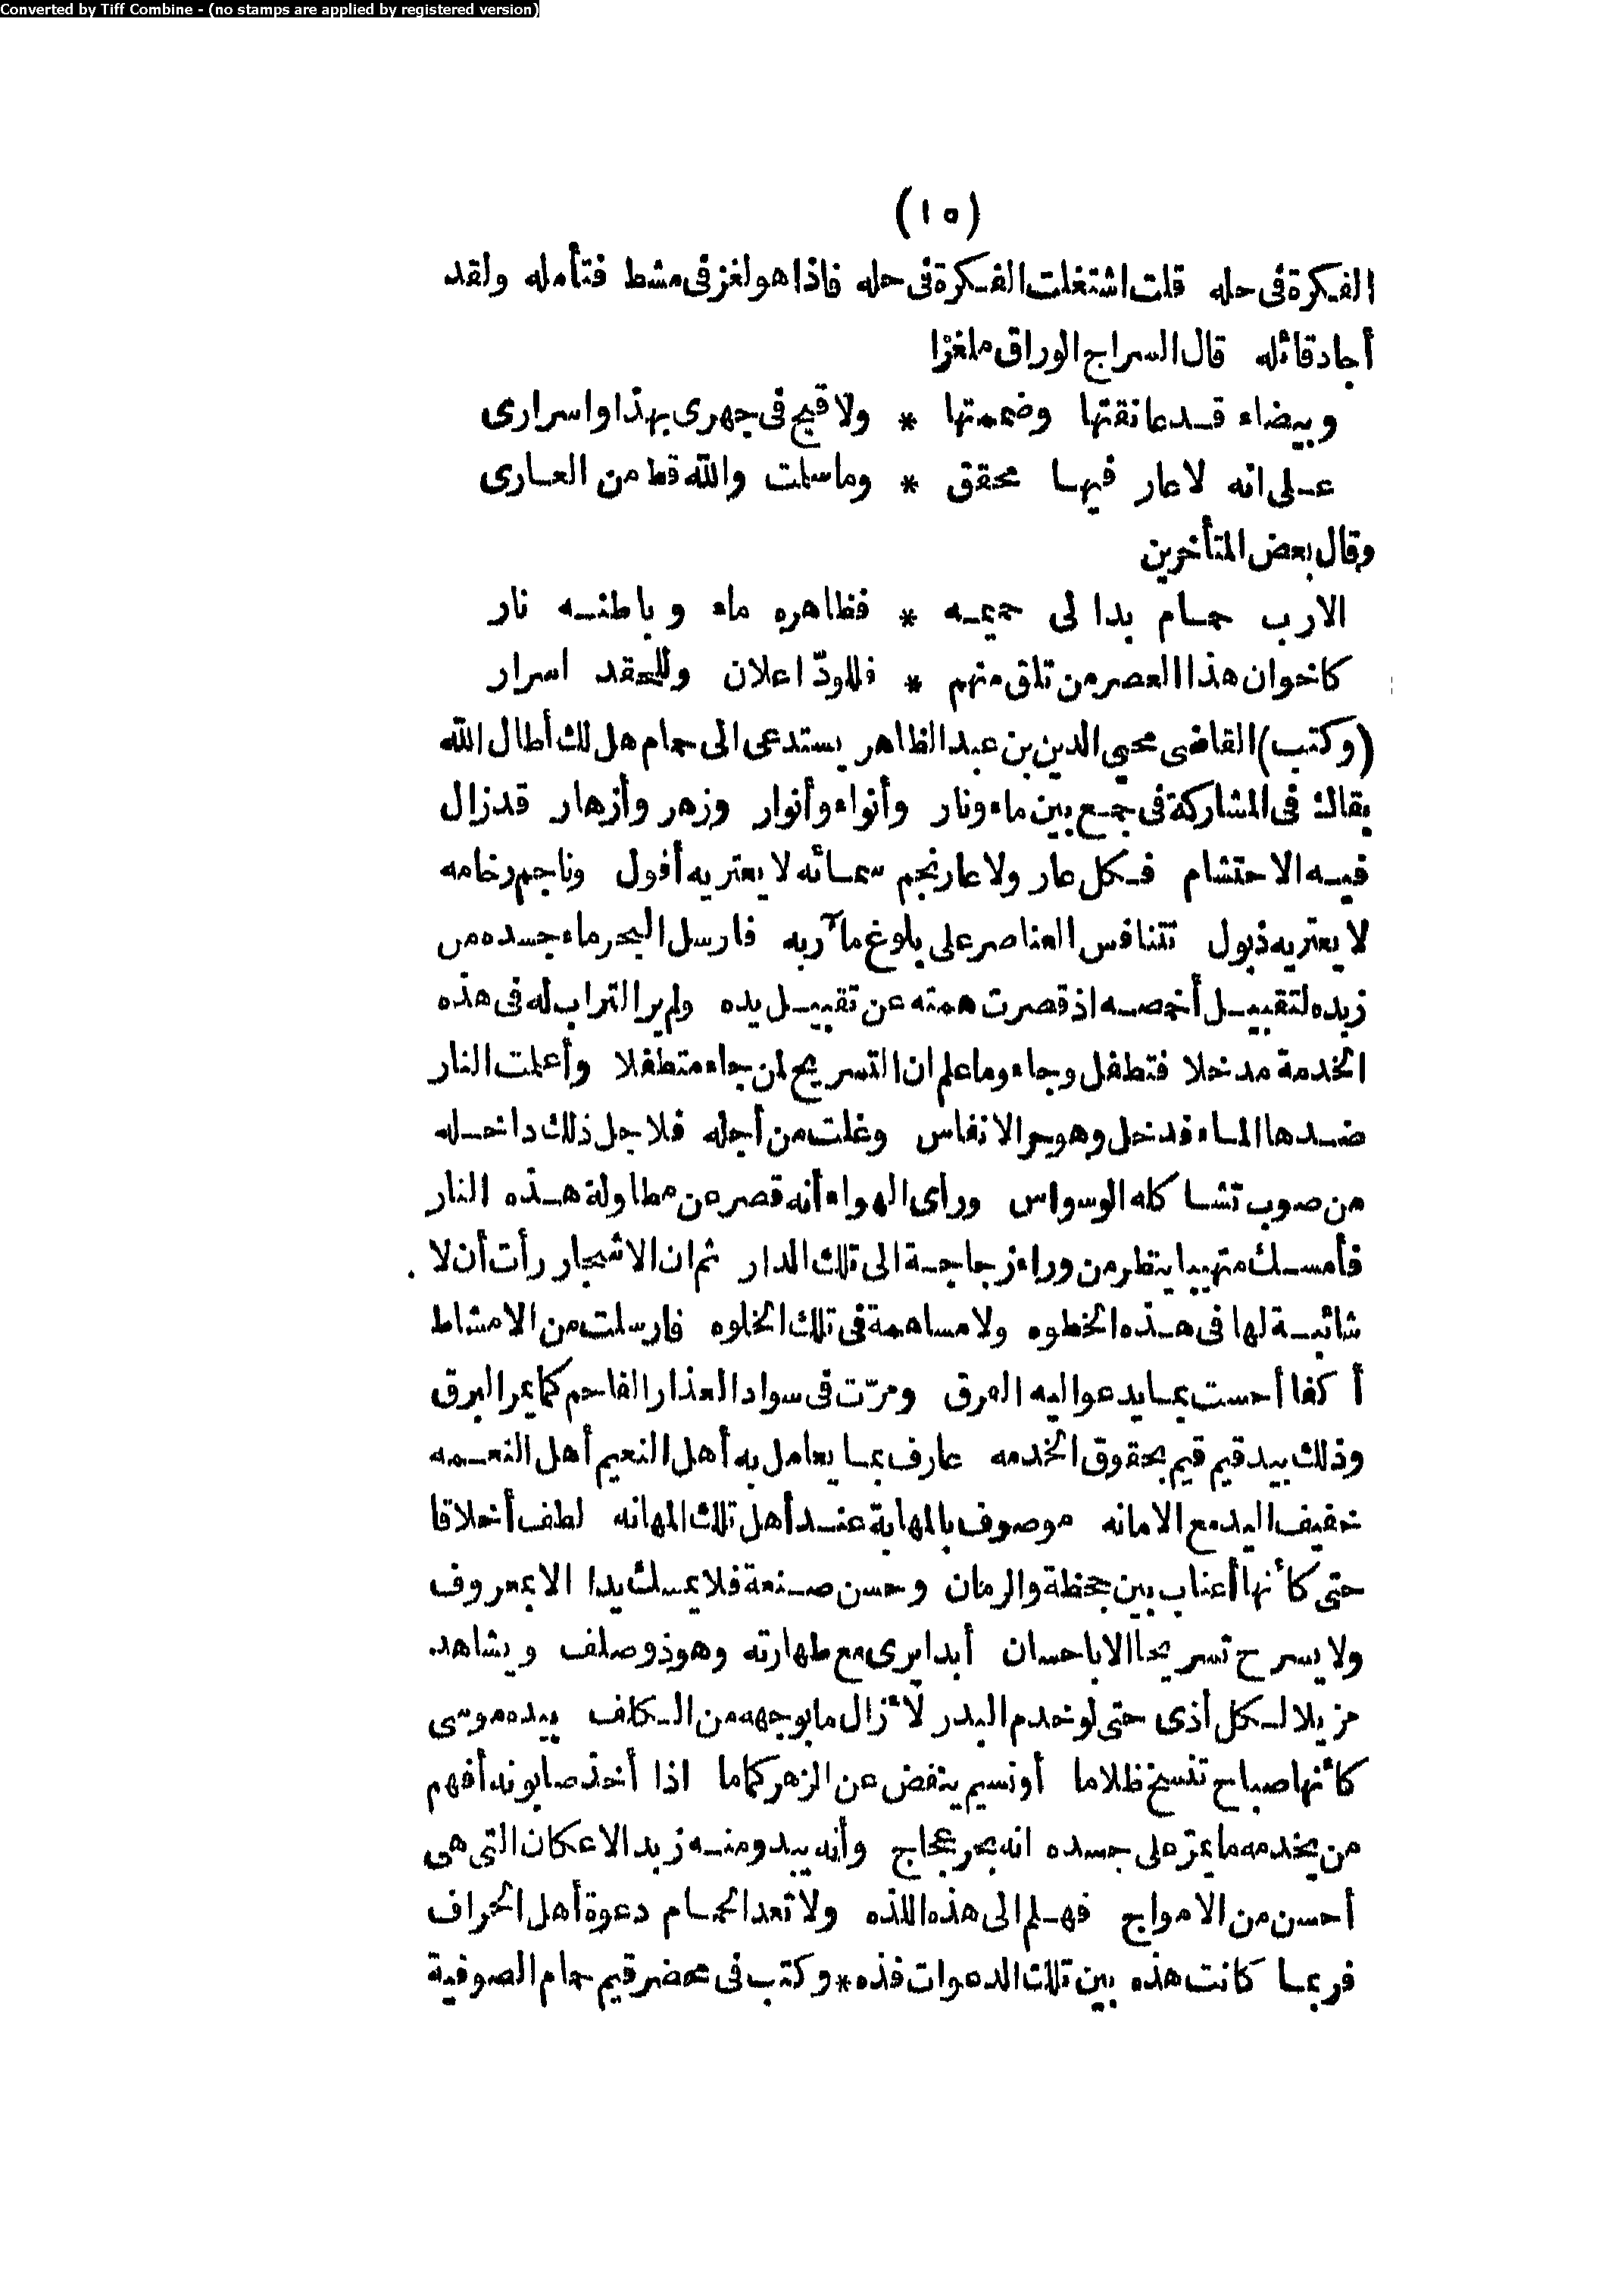 Converted by Tiff Combine - (no stamps are applied by registered version)
(١٥)
الفكرة فى حله قلت اشتغلت الفكرة فى حله فاذا هو لغز فى مشط فتأمله ولقد
أجاد قائله قال السراج الوراق ملغزا
وبيضاء قد عانقتها وضممتها * ولا قبح فى جهرى بهذا واسرارى
على انه لا عار فيها محقق * وما سلمت والله قط من العارى
وقال بعض المتأخرين
الارب حمام بدا لى حميمه * فظاهره ماء وباطنه نار
كاخوان هذا العصر من تلق منهم * فللودّ اعلان وللحقد اسرار
(وكتب) القاضى محيي الدين بن عبد الظاهر يستدعى الى حمام هل لك أطال الله
بقاك فى المشاركة فى جمع بين ماء ونار وأنواء وأنوار وزهر وأزهار قد زال
فيه الاحتشام فكل عار ولا عار نجم سمائه لا يعتريه أفول وناجم رخامه
لا يعتريه ذبول تتنافس العناصر على بلوغ مآربه فارسل البحر ماء جسده من
زبده لتقبيل أخمصه اذ قصرت همته عن تقبيل يده ولم ير التراب له فى هذه
الخدمة مدخلا فتطفل وجاء وما علم ان التسريح لمن جاء متطفلا وأعملت النار
ضدها الماء فدخل وهو حر الانفاس وغلت من أجله فلاجل ذلك داخله
من صوب تشاكله الوسواس ورأى الهواء أنه قصر عن مطاولة هذه النار
فأمسك متهيبا ينظر من وراء زجاجة الى تلك الدار ثم ان الاشجار رأت أن لا
شائبة لها فى هذه الخطوه ولا مساهمة فى تلك الخلوه فارسلت من الامشاط
أكفا أحست بما يدعو اليه الفرق ومرّت فى سواد العذار الفاحم كما يمر البرق
وذلك بيد قيم قيم بحقوق الخدمه عارف بما يعامل به أهل النعيم أهل النعمه
خفيف اليد مع الامانه موصوف بالمهابة عند أهل تلك المهانه لطف أخلاقا
حتى كأنها أعتاب بين جحظة والزمان وحسن صنعة فلا يمسك يدا الا بمعروف
ولا يسرح تسريحا الا باحسان أبدا يرى مع طهارته وهو ذو صلف ويشاهد
مزيلا لكل أذى حتى لو خدم البدر لأزال ما بوجهه من الكلف بيده موسى
كأنها صباح تنسخ ظلاما أو نسيم ينفض عن الزهر كماما اذا أخذ صابونه أفهم
من يخدمه ما يمرّ على جسده انه بحر عجاج وأنه يبدو منه زبد الاعكان التى هى
أحسن من الامواج فهلم الى هذه اللذه ولا تعد الحمام دعوة أهل الحراف
فربما كانت هذه بين تلك الدعوات فذه * وكتب فى محضر قيم حمام الصوفية